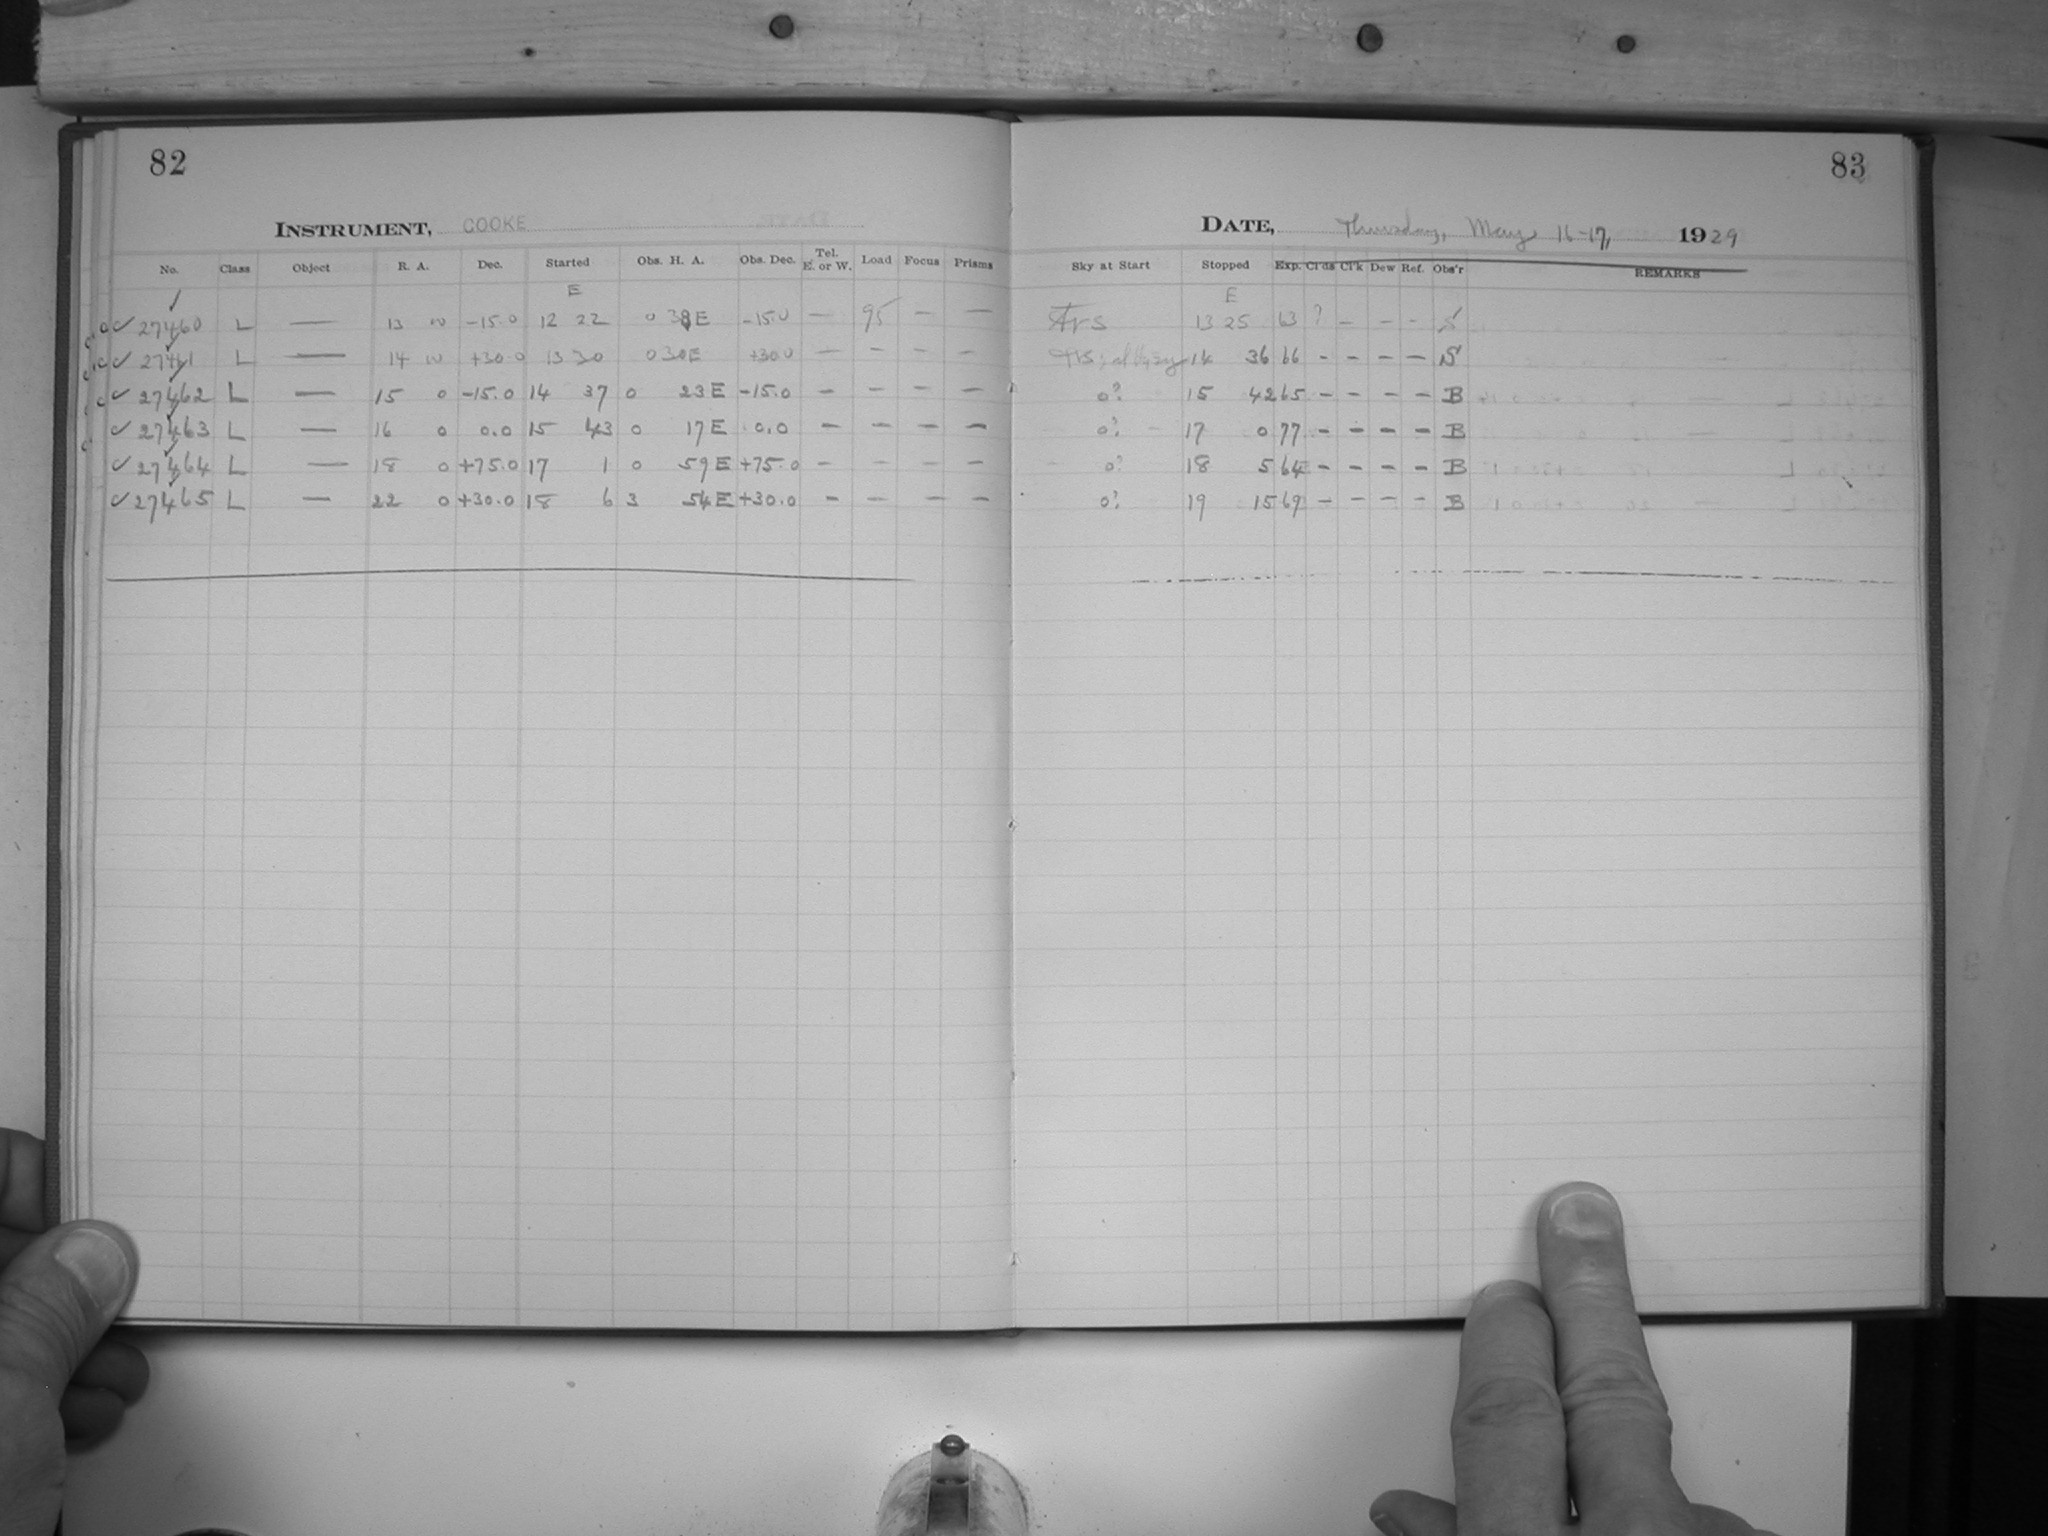 82
INSTRUMENT, COOKE
No. Class Object R. A. Dec. Started Obs. H. A. Obs. Dec. Tel. E. or W. Load Focus Prisms
E
27460 L — 13 0 -15.0 12 22 0 38 E -15.0 — 95 — —
27461 L — 14 0 +30.0 13 30 0 30 E +30.0 — — — —
27462 L — 15 0 -15.0 14 37 0 23 E -15.0 — — — —
27463 L — 16 0 0.0 15 43 0 17 E 0.0 — — — —
27464 L — 18 0 +75.0 17 1 0 59 E +75.0 — — — —
27465 L — 22 0 +30.0 18 6 3 54 E +30.0 — — — —
83
DATE, Thursday, May 16-17, 1929
Sky at Start Stopped Exp. Cl'ds Cl'k Dew Ref. Obs'r REMARKS
E
13 25 63 ? — — — S
14 36 66 — — — — S
0? 15 42 65 — — — — B
0? 17 0 77 — — — — B
0? 18 5 64 — — — — B
0? 19 15 69 — — — — B